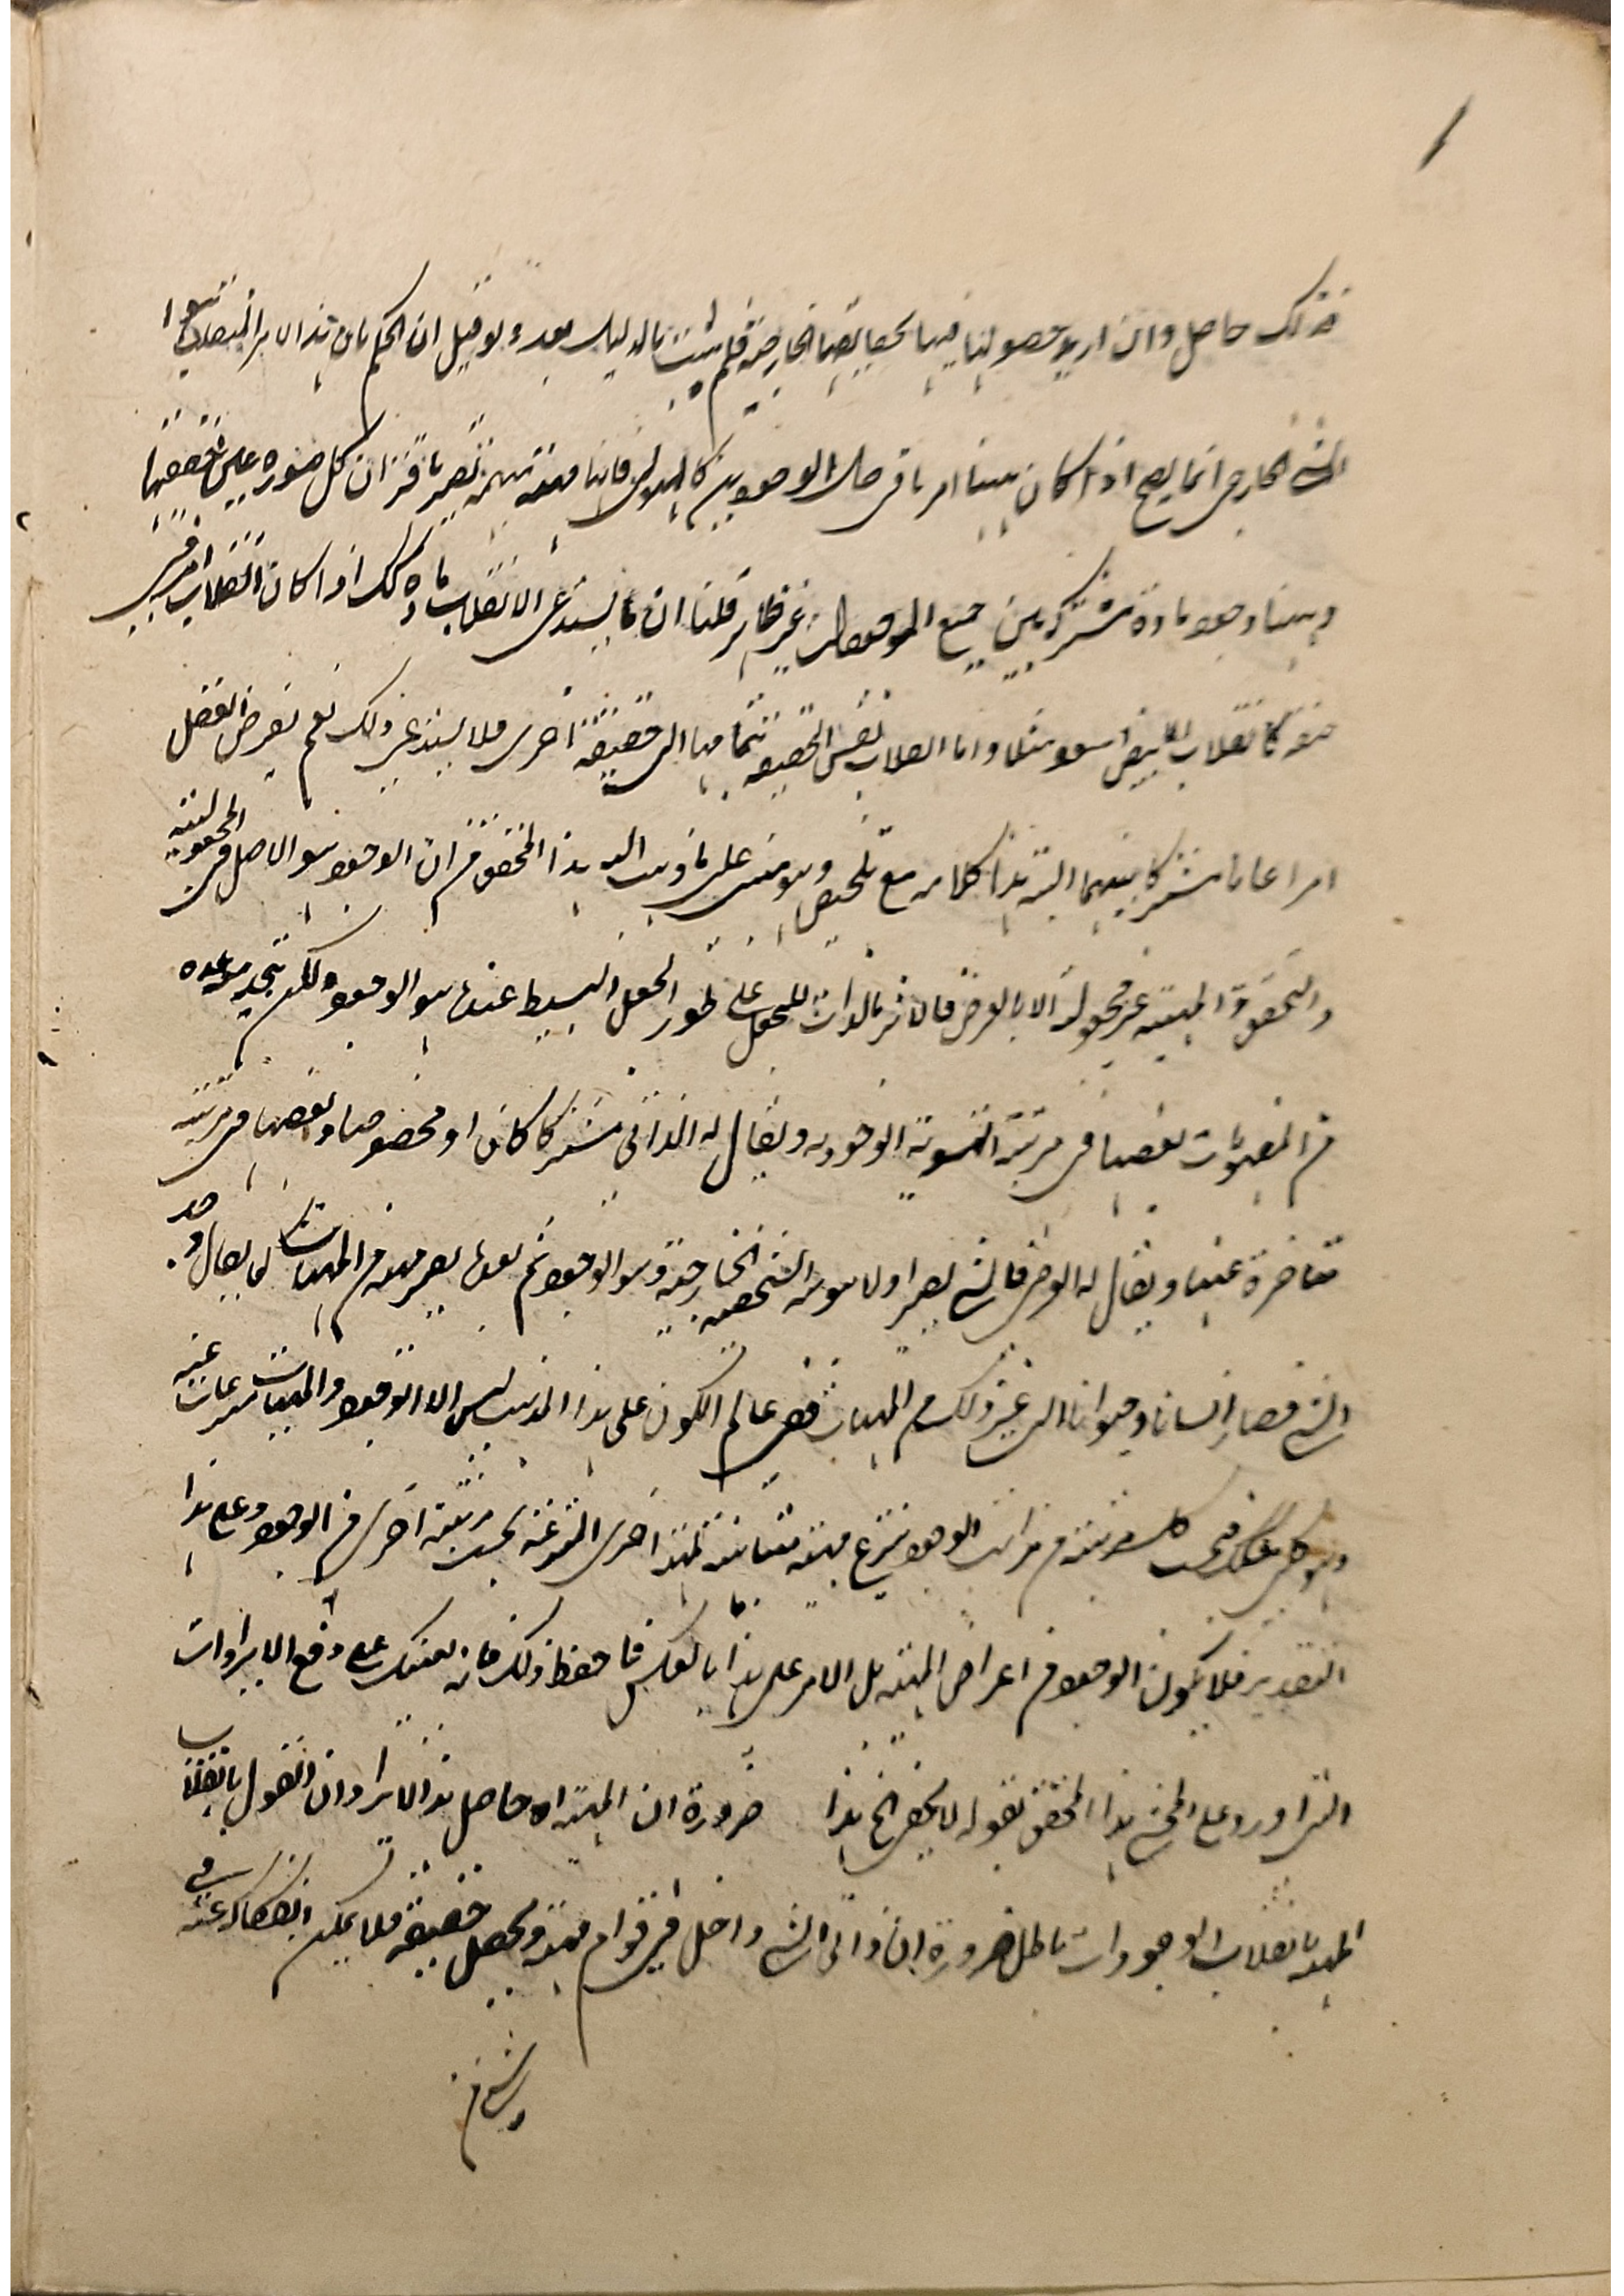 فذلك حاصل وان اريد حصولها فيها بحقايقها الخارجية فلم يثبت بالدليل بعد ولو قيل ان الحكم بان هذا الامر الذهني
الشئ الخارجي انما يصح اذا كان هناك امر باق حال الوجودين كالهيولى فانها مبهمة تصير باقتران كل صورة عين حقيقتها
وههنا وجود مادة مشتركة بين جميع الموجودات غير ظاهر قلنا ان ما يستدعي الانقلاب مادة كذلك اذا كان انقلاب امر في
صفة كانقلاب الابيض اسود مثلا واما انقلاب نفس الحقيقة بتمامها الى حقيقة اخرى فلا يستدعي ذلك نعم يفرض العقل
امرا عاما مشتركا بينهما البتة هذا كلامه مع تلخيص وهو مبني على ما ذهب اليه هذا المحقق من ان الوجود هو الاصل في المجعولية
والتحقق والمهية غير مجعولة الا بالعرض فالاثر بالذات للجعل على طور الجعل البسيط عنده هو الوجود ولكن يتحد معه
من المفهومات بعضها في مرتبة الهوية الوجودية ويقال له الذاتي مشتركا كان او مخصوصا وبعضها في مرتبة
متاخرة عنها ويقال له العرضي فالشئ يصير اولا هوية الشخصية الخارجية وهو الوجود ثم بعدها يصير مهية من المهيات كما يقال وجد
الشئ فصار انسانا وحيوانا الى غير ذلك من المهيات ففي عالم الكون على هذا المذهب ليس الا الوجود والمهيات منتزعات عنه
كل مرتبة من مراتب الوجود ينتزع مهية مباينة لمهية اخرى المنتزعة بحسب مرتبة اخرى من الوجود وعلى هذا
التقدير فلا يكون الوجود من اعراض المهية بل الامر على هذا بالعكس فاحفظ ذلك فانه يعينك على دفع الايرادات
التي اورد على المحشي هذا المحقق بقوله لا يخفى الخ هذا ضرورة ان المهية اه حاصل هذا الايراد ان القول بانقلاب
المهية بانقلاب الوجودات باطل ضرورة ان ذاتي الشئ داخل في قوام مهيته ومحصل حقيقته فلا يمكن انفكاكه عنه في